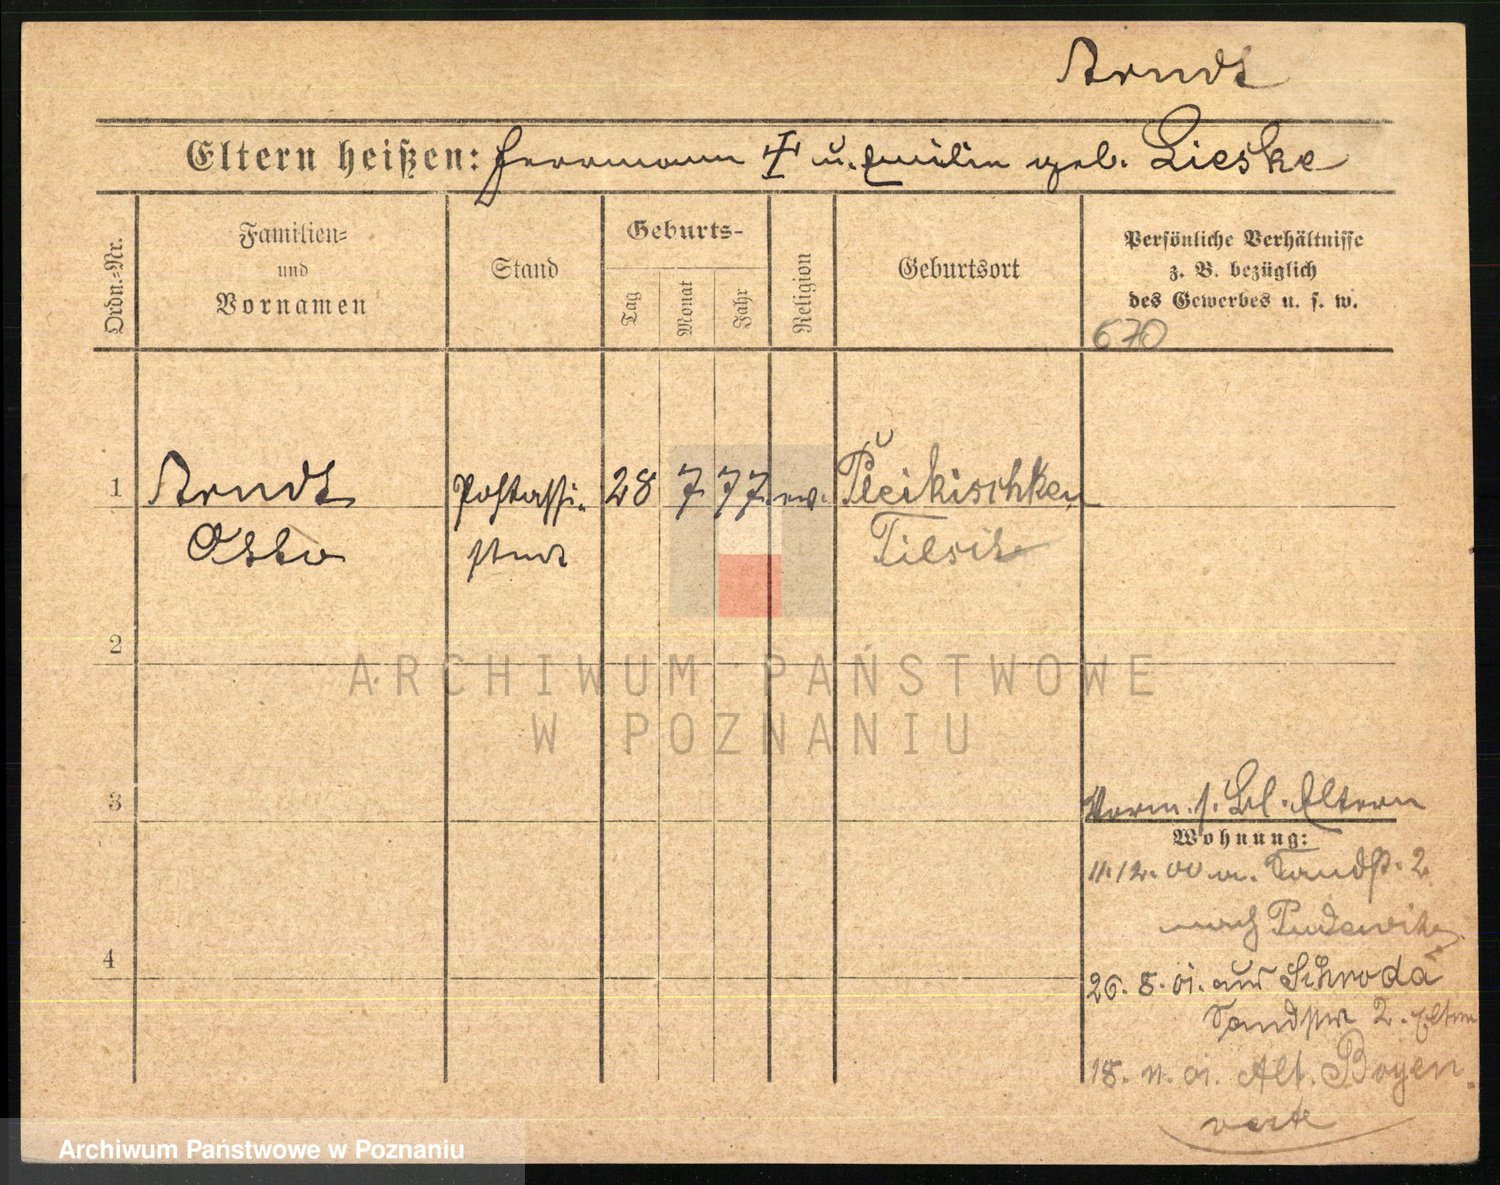 Arndt
Eltern heißen: Herrmann u. Emilie geb. Lieske
Ordn.=Nr.
Familien=
und
Vornamen
Stand
Geburts-
Tag
Monat
Jahr
Religion
Geburtsort
Persönliche Verhältnisse
z. B. bezüglich
des Gewerbes u. s. w.
670
1 Arndt Postassi- 28 7 77 ev. Pleikischken
Otto stent Tilsit
2
3
4
Verm. s. Bl. Eltern
Wohnung:
11.12.00 Sandstr. 2
nach Pudewitz
26. 8. 01. aus Schroda
Sandstr 2. Eltern
18. 11. 01. Alt. Boyen.
verte
ARCHIWUM PAŃSTWOWE
W POZNANIU
Archiwum Państwowe w Poznaniu